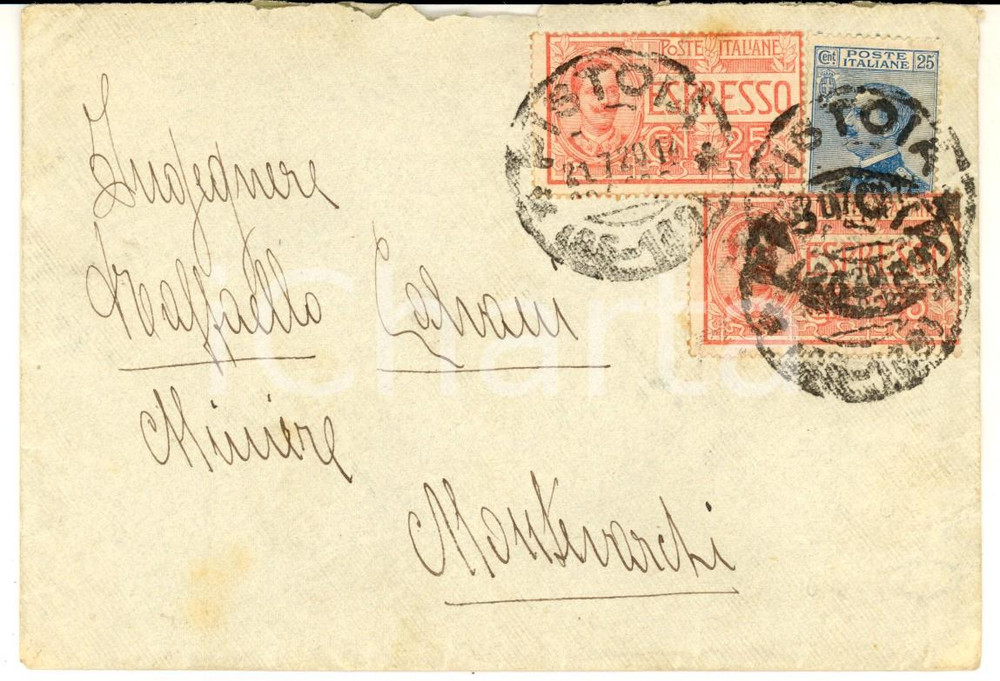 POSTE ITALIANE
ESPRESSO
CENT 25
PISTOIA
Cent 25
POSTE
ITALIANE
PISTOIA
PISTOIA
ESPRESSO
Ingegnere
Raffaello
Miniere
Montevarchi
iCharta